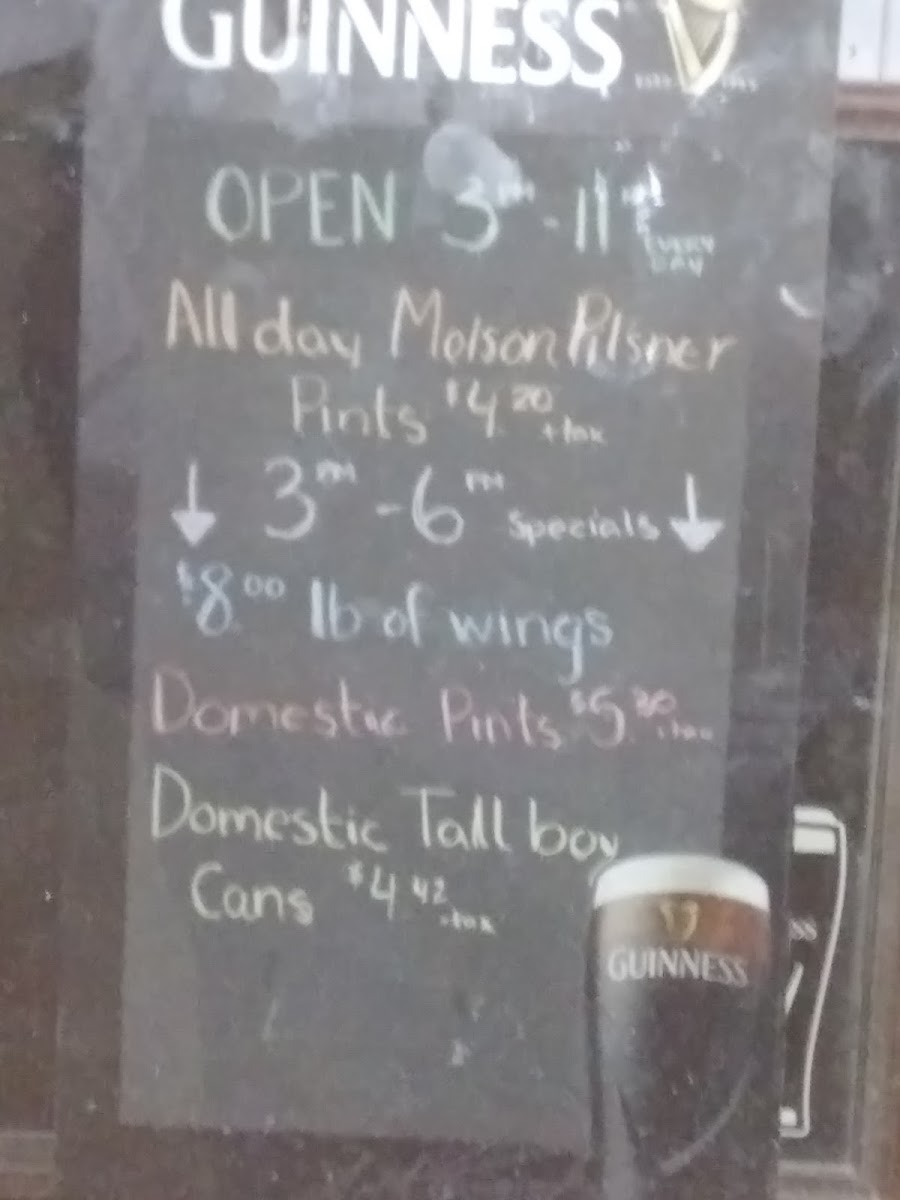 GUINNESS
OPEN 3PM - 11PM EVERY DAY
All day Molson Pilsner
Pints $4.20 +tax
3PM - 6PM Specials
$8.00 lb of wings
Domestic Pints $5.20 +tax
Domestic Tall boy
Cans $4.42 +tax
GUINNESS